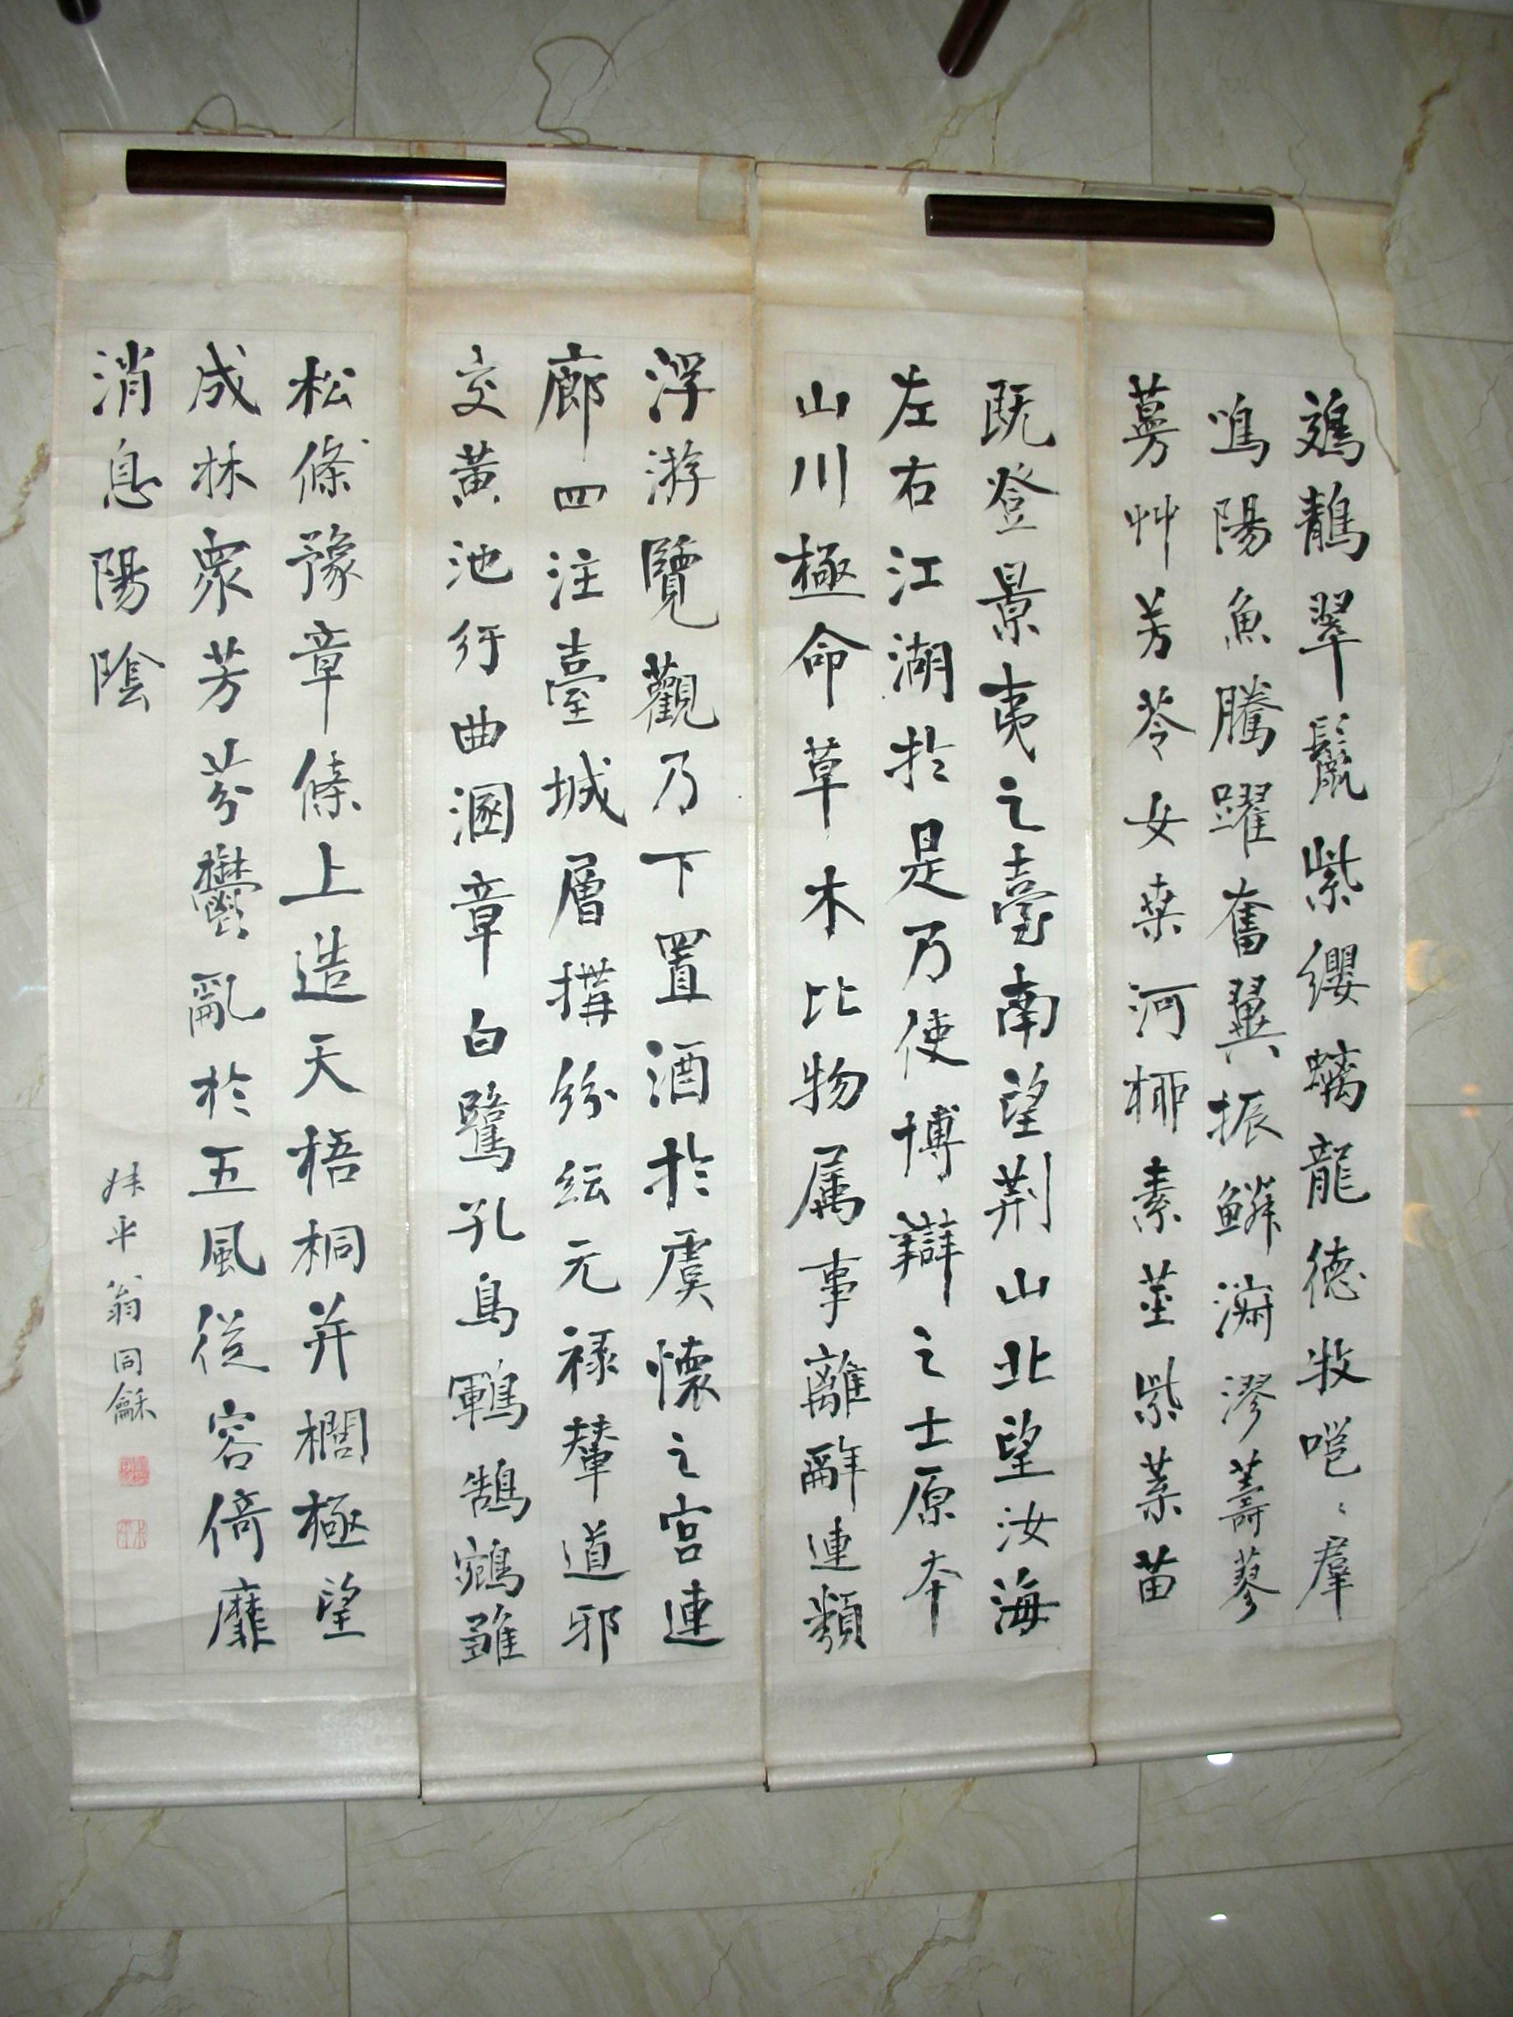 鵷鶄翠鬣紫纓螭龍德牧邕〻羣
鳴陽魚騰躍奮翼振鱗漃漻薵蓼
蔓艸芳苓女桑河柳素莖紫葉苗
既登景夷之臺南望荆山北望汝海
左右江湖於是乃使博辯之士原本
山川極命草木比物属事離辭連類
浮游覽觀乃下置酒於虞懷之宮連
廊四注臺城層構紛紜元禄輦道邪
交黃池紆曲溷章白鷺孔鳥鶤鵠鵷雛
松條豫章條上造天梧桐并櫚極望
成林眾芳芬鬱亂於五風從容猗靡
消息陽陰
妹平翁同龢